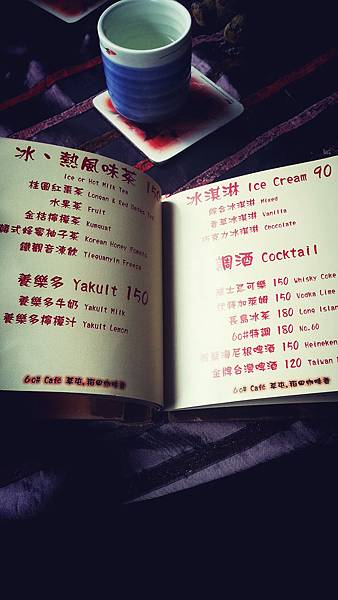 冰、熱風味茶 150
Ice or Hot Milk Tea
桂圓紅棗茶 Longan & Red Dates Tea
水果茶 Fruit
金桔檸檬茶 Kumquat
韓式蜂蜜柚子茶 Korean Honey Pomelo
鐵觀音凍飲 Tieguanyin Freeze
養樂多 Yakult 150
養樂多牛奶 Yakult Milk
養樂多檸檬汁 Yakult Lemon
60# Café 草屯。
冰淇淋 Ice Cream 90
綜合冰淇淋 Mixed
香草冰淇淋 Vanilla
巧克力冰淇淋 Chocolate
調酒 Cocktail
士忌可樂 150 Whisky Coke
特加萊姆 150 Vodka Lime
長島冰茶 180 Long Island
60#特調 180 No.60
海尼根啤酒 150 Heineken
金牌台灣啤酒 120 Taiwan
60# Café 草屯。